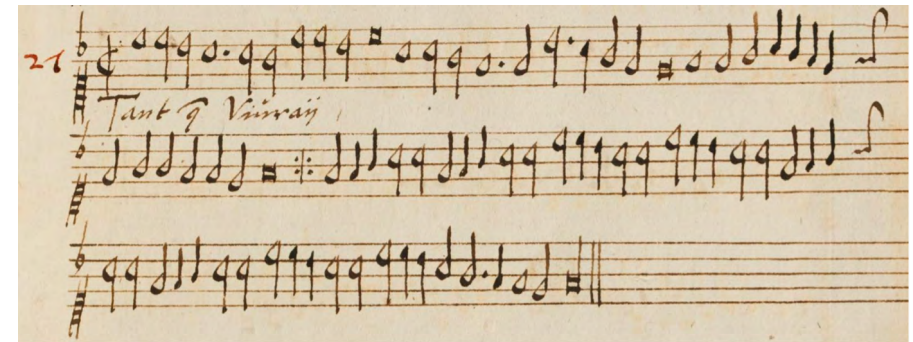 21
Tant q̃ Viuraij